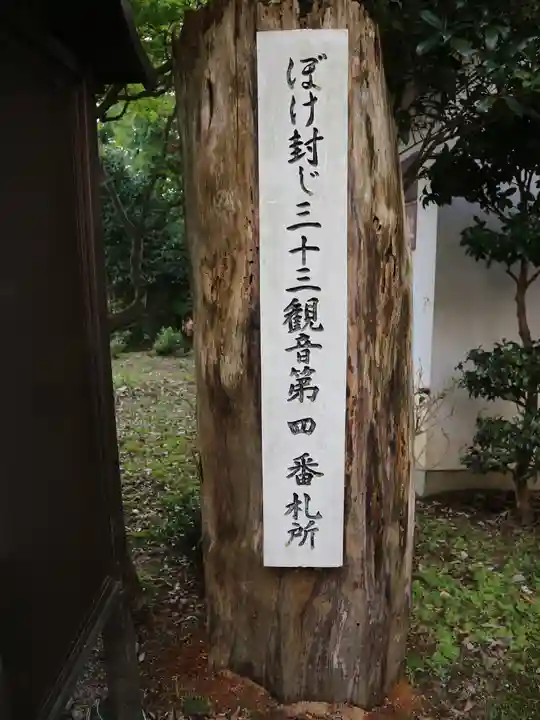 ぼけ封じ三十三観音第四番札所